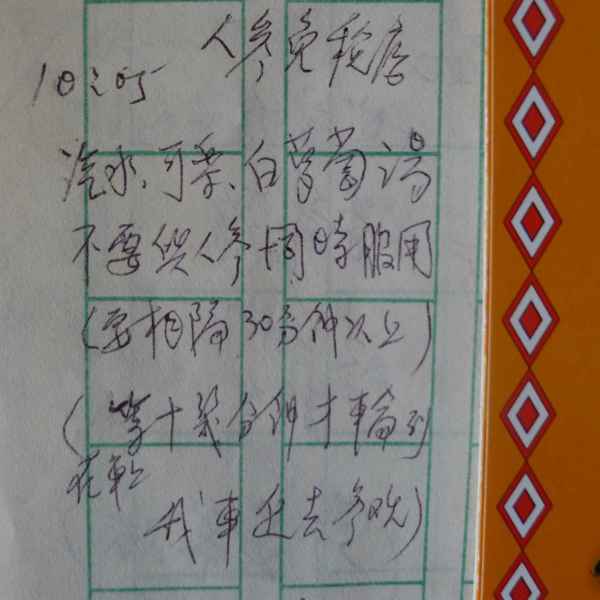 人參免稅店
10:05
汽水、可樂、白蘿蔔湯
不要與人參同時服用
(要相隔30分鐘以上)
(等十幾分鐘才輪到
在車上
我車進去參观)